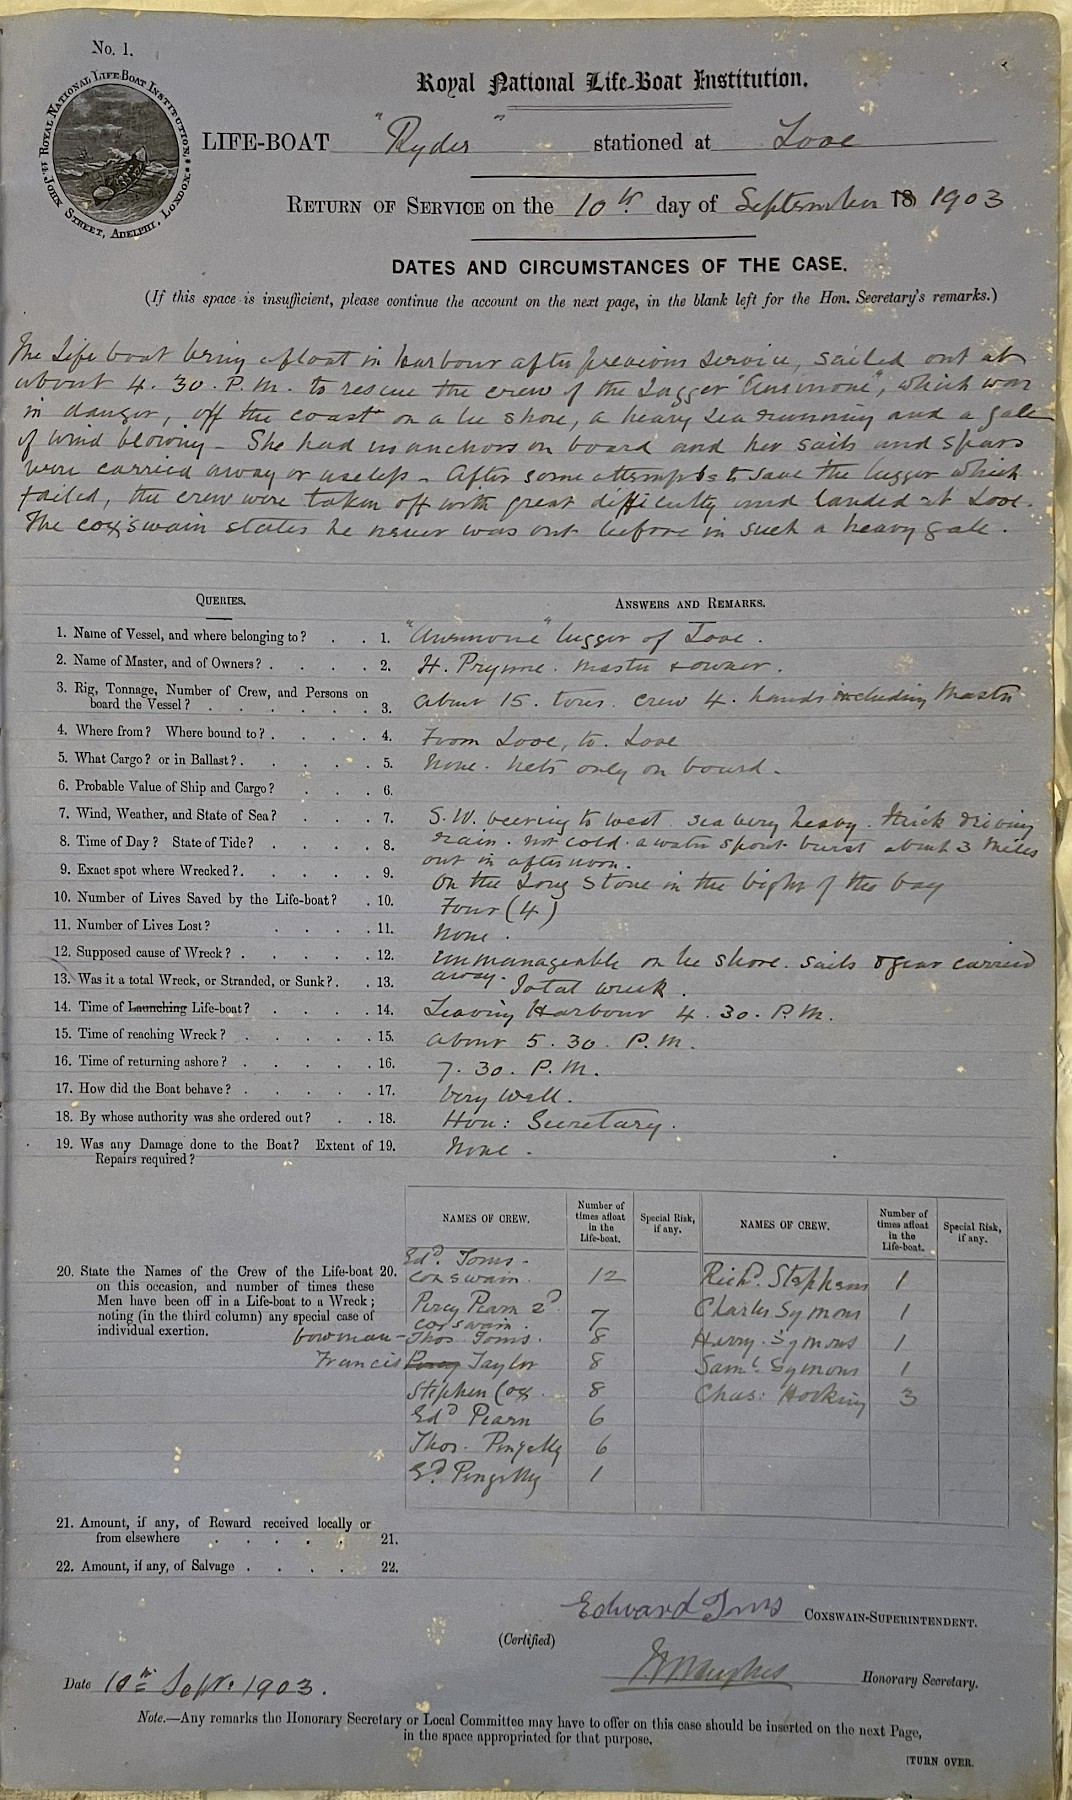 No. 1.
ROYAL NATIONAL LIFE-BOAT INSTITUTION,
14 JOHN STREET, ADELPHI, LONDON.
Royal National Life-Boat Institution.
LIFE-BOAT "Ryder" stationed at Looe
RETURN OF SERVICE on the 10th day of September 18 1903
DATES AND CIRCUMSTANCES OF THE CASE.
(If this space is insufficient, please continue the account on the next page, in the blank left for the Hon. Secretary's remarks.)
The Life boat being afloat in harbour after previous service, sailed out at
about 4. 30. P.M. to rescue the crew of the Lugger "Annimone", which was
in danger, off the coast on a lee shore, a heavy sea running and a gale
of wind blowing - She had no anchors on board and her sails and spars
were carried away or useless - After some attempts to save the lugger which
failed, the crew were taken off with great difficulty and landed at Looe.
The coxswain states he never was out before in such a heavy gale.
QUERIES.
ANSWERS AND REMARKS.
1. Name of Vessel, and where belonging to? . . 1. lugger of Looe.
2. Name of Master, and of Owners? . . . . 2. H. Prynne. Master & owner.
3. Rig, Tonnage, Number of Crew, and Persons on
board the Vessel? . . . . . . 3. About 15. tons. crew 4. hands including Master
4. Where from? Where bound to? . . . . 4. From Looe, to. Looe
5. What Cargo? or in Ballast? . . . . 5. None. Nets only on board.
6. Probable Value of Ship and Cargo? . . . 6.
7. Wind, Weather, and State of Sea? . . . 7. S.W. veering to west. sea very heavy. thick driving
8. Time of Day? State of Tide? . . . . 8. rain. not cold. a water spout burst about 3 miles
out in afternoon.
9. Exact spot where Wrecked? . . . . 9. On the Long Stone in the bight of the bay
10. Number of Lives Saved by the Life-boat? . 10. Four (4)
11. Number of Lives Lost? . . . . 11. None.
12. Supposed cause of Wreck? . . . . . 12. Unmanageable on lee shore. sails & gear carried
away.
13. Was it a total Wreck, or Stranded, or Sunk? . . 13. Total wreck.
14. Time of Launching Life-boat? . . . . 14. Leaving Harbour 4. 30. P.M.
15. Time of reaching Wreck? . . . . . 15. about 5. 30. P.M.
16. Time of returning ashore? . . . . . 16. 7. 30. P.M.
17. How did the Boat behave? . . . . . 17. Very well.
18. By whose authority was she ordered out? . . 18. Hon: Secretary.
19. Was any Damage done to the Boat? Extent of 19. None.
Repairs required?
NAMES OF CREW. Number of times afloat in the Life-boat. Special Risk, if any. NAMES OF CREW. Number of times afloat in the Life-boat. Special Risk, if any.
20. State the Names of the Crew of the Life-boat 20.
on this occasion, and number of times these
Men have been off in a Life-boat to a Wreck;
noting (in the third column) any special case of
individual exertion.
Edd. Toms -
coxswain. 12 Richd. Stephens 1
Percy Pearn 2d
coxswain. 7 Charles Symons 1
bowman - Thos Toms. 8 Harry Symons 1
Francis Percy Taylor 8 Saml. Symons 1
Stephen Cox. 8 Chas: Hocking 3
Edd Pearn 6
Thos. Pengelly 6
Ed. Pengelly 1
21. Amount, if any, of Reward received locally or
from elsewhere . . . . . 21.
22. Amount, if any, of Salvage . . . . 22.
Edward Toms COXSWAIN-SUPERINTENDENT.
(Certified)
Honorary Secretary.
Date 10th Sept. 1903.
Note.—Any remarks the Honorary Secretary or Local Committee may have to offer on this case should be inserted on the next Page,
in the space appropriated for that purpose.
[TURN OVER.